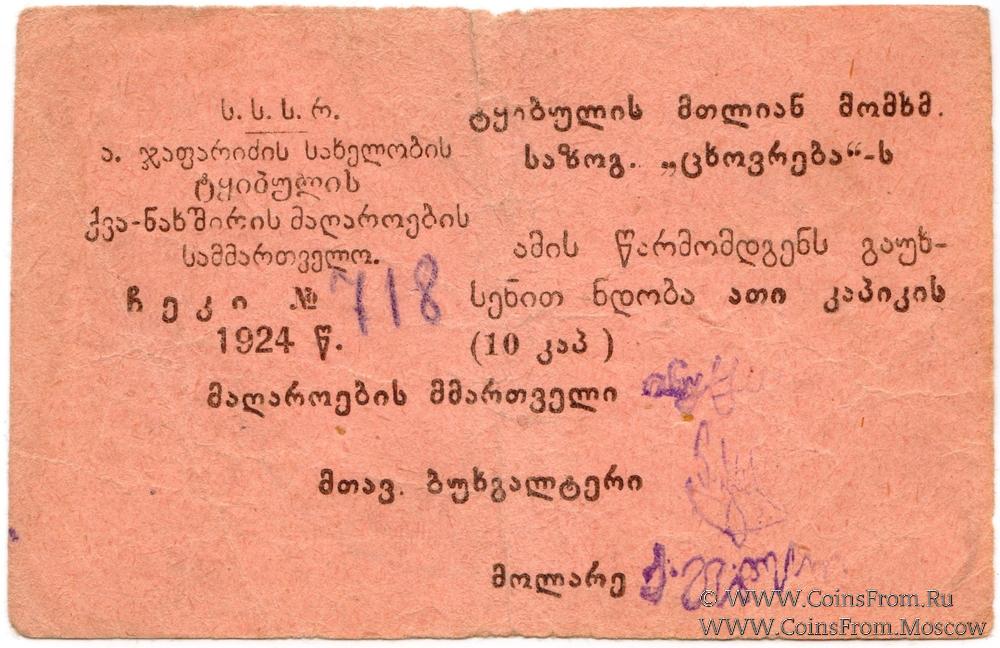 ს. ს. ს. რ.
ა. ჯაფარიძის სახელობის
ტყიბულის
ქვა-ნახშირის მაღაროების
სამმართველო.
ჩეკი № 718
1924 წ.
ტყიბულის მთლიან მომხმ.
საზოგ. „ცხოვრება“-ს
ამის წარმომდგენს გაუხ-
სენით ნდობა ათი კაპიკის
(10 კაპ )
მაღაროების მმართველი
მთავ. ბუხგალტერი
მოლარე
© WWW.CoinsFrom.Ru
WWW.CoinsFrom.Moscow